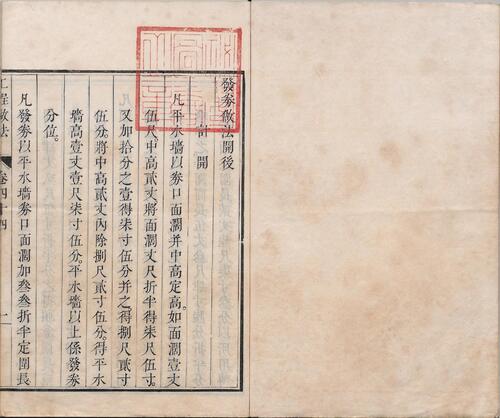 發劵做法開後
計開
凡平水墻以劵口面濶并中高定高如面濶壹丈
伍尺中高貳丈將面濶丈尺折半得柒尺伍寸
又加拾分之壹得柒寸伍分并之得捌尺貳寸
伍分將中高貳丈內除捌尺貳寸伍分得平水
墻高壹丈壹尺柒寸伍分平水墻以上係發劵
分位
凡發劵以平水墻劵口面濶加叁叁折半定圍長
工程做法
卷四十四
一